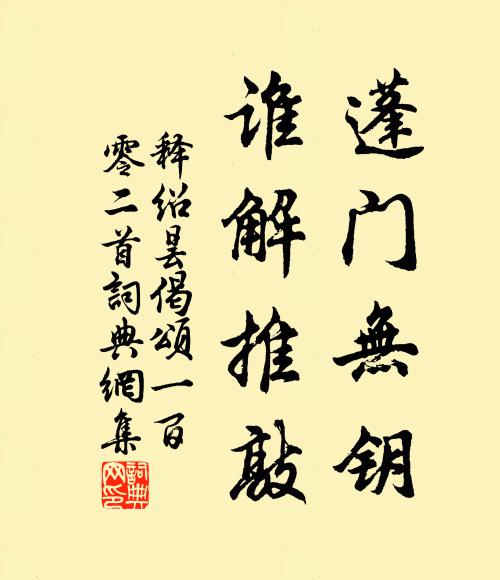 蓬门無钥
谁解推敲
释绍昙偈颂一百
零二首詞典網集
詞典網印